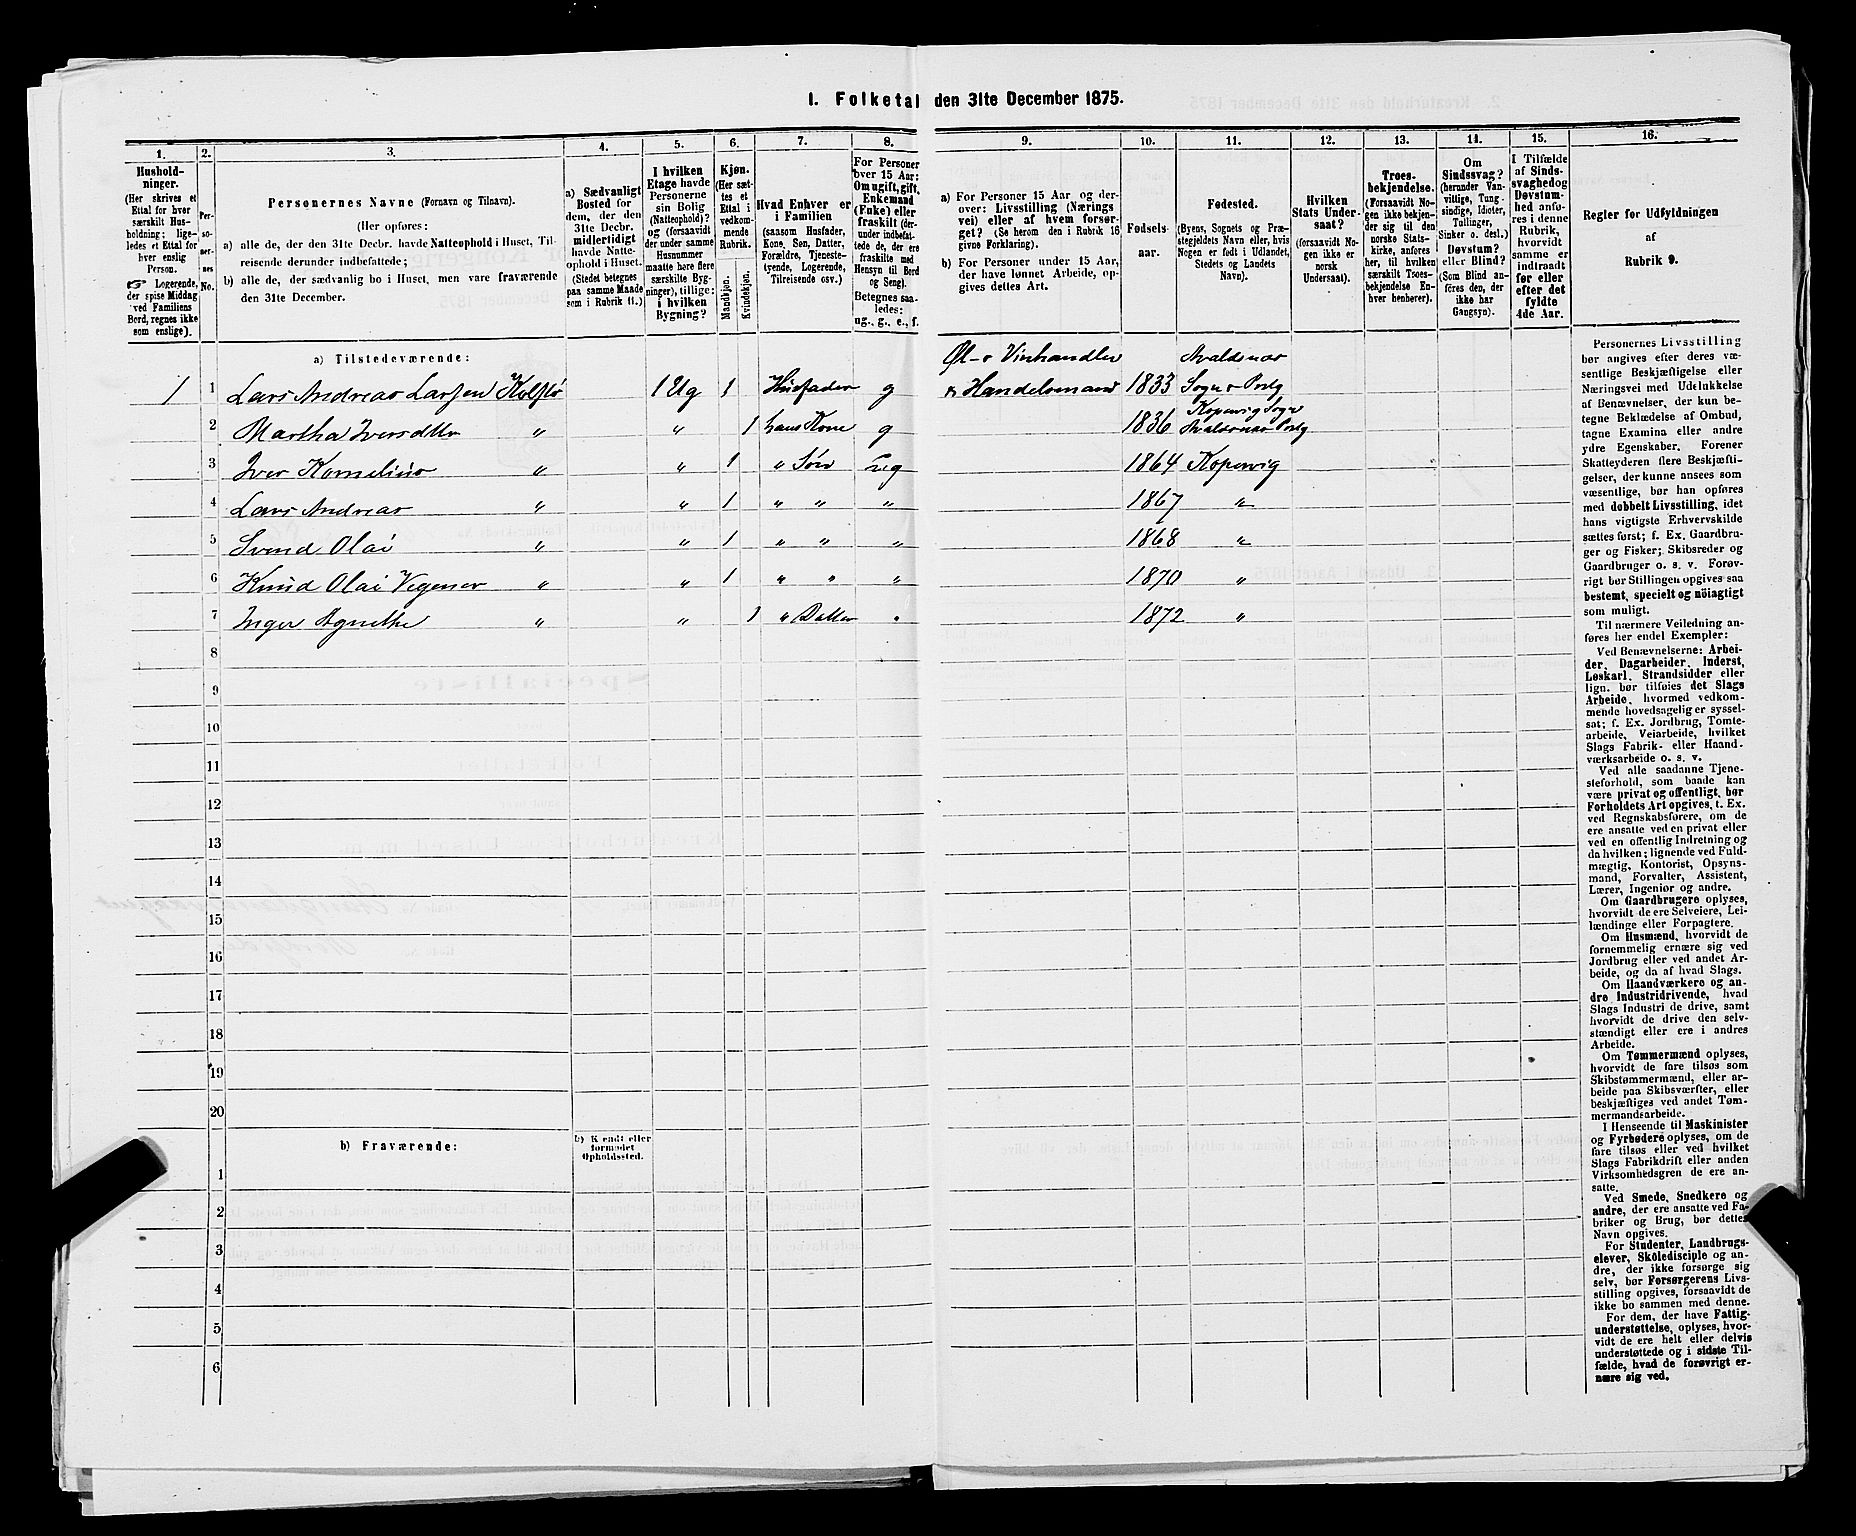 I. Folketal den 31te December 1875.
1. 2. 3. 4. 5. 6. 7. 8. 9. 10. 11. 12. 13. 14. 15. 16.
Hushold-
ninger.
(Her skrives et
Ettal for hver
særskilt Hus-
holdning; lige-
ledes et Ettal for
hver enslig
Person.
Logerende,
der spise Middag
ved Familiens
Bord, regnes ikke
som enslige).
Per-
so-
ner-
nes
No.
Personernes Navne (Fornavn og Tilnavn).
(Her opføres:
a) alle de, der den 31te Decbr. havde Natteophold i Huset, Til-
reisende derunder indbefattede;
b) alle de, der sædvanlig bo i Huset, men vare fraværende
den 31te December.
a) Sædvanligt
Bosted for
dem, der den
31te Decbr.
midlertidigt
havde Natte-
ophold i Huset.
(Stedet betegnes
paa samme Maade
som i Rubrik 11.)
I hvilken
Etage havde
Personerne
sin Bolig
(Natteophold)?
og (forsaavidt
der under samme
Husnummer
maatte høre flere
særskilte Byg-
ninger), tillige:
i hvilken
Bygning?
Kjøn.
(Her sæt-
tes et
Ettal i
vedkom-
mende
Rubrik.
Mandkjøn.
Kvindekjøn.
Hvad Enhver er
i Familien
(saasom Husfader,
Kone, Søn, Datter,
Forældre, Tjeneste-
tyende, Logerende,
Tilreisende osv.)
For Personer
over 15 Aar:
Om ugift, gift,
Enkemand
(Enke) eller
fraskilt (der-
under indbefat-
tede de, der ere
fraskilte med
Hensyn til Bord
og Seng).
Betegnes saa-
ledes:
ug., g., e., f.
a) For Personer 15 Aar og der-
over: Livsstilling (Nærings
vei) eller af hvem forsør-
get? (Se herom den i Rubrik 16
givne Forklaring).
b) For Personer under 15 Aar,
der have lønnet Arbeide, op-
gives dettes Art.
Fødsels-
aar.
Fødested.
(Byens, Sognets og Præ-
stegjeldets Navn eller, hvis
Nogen er født i Udlandet,
Stedets og Landets
Navn).
Hvilken
Stats Under-
saat?
(forsaavidt No-
gen ikke er
norsk
Undersaat).
Troes-
bekjendelse.
(Forsaavidt No-
gen ikke bekjen-
der sig til den
norske Stats-
kirke, anføres
her, til hvilken
særskilt Troes-
bekjendelse En-
hver henhører).
Om
Sindssvag?
(herunder Van-
vittige, Tung-
sindige, Idioter,
Tullinger,
Sinker o. desl.)
Døvstum?
eller Blind?
(Som Blind an-
føres den, der
ikke har
Gangsyn).
I Tilfælde
af Sinds-
svaghed og
Døvstum-
hed anfø-
res i denne
Rubrik,
hvorvidt
samme er
indtraadt
før eller
efter det
fyldte
4de Aar.
Regler for Udfyldningen
af
Rubrik 9.
a) Tilstedeværende:
Øl- o Vinhandler Avaldsnæs
1 1 Lars Andreas Larsen Kolstø 1 Etg 1 Husfader g & Handelsmand 1833 Sogn o Prstg
Kopervig Sogn
2 Martha Iversdtr " " 1 hans Kone g 1836 Avaldsnæs Prstg
3 Iver Kornelius " " 1 " Søn ug 1864 Kopervig
4 Lars Andreas " " 1 " " " 1867 "
5 Svend Olai " " 1 " " " 1868 "
6 Knud Olai Vegener " " 1 " " " 1870 "
7 Inger Agnethe " " 1 " Datter " 1872 "
8
9
10
11
12
13
14
15
16
17
18
19
20
b) Fraværende:
b) Kjendt eller
formodet
Opholdssted.
1
2
3
4
5
6
Personernes Livsstilling
bør angives efter deres væ-
sentlige Beskjæftigelse eller
Næringsvei med Udelukkelse
af Benævnelser, der kun be-
tegne Beklædelse af Ombud,
tagne Examina eller andre
ydre Egenskaber. Forener
Skatteyderen flere Beskjæfti-
gelser, der kunne ansees som
væsentlige, bør han opføres
med dobbelt Livsstilling, idet
hans vigtigste Erhvervskilde
sættes først; f. Ex. Gaardbru-
ger og Fisker; Skibsreder og
Gaardbruger o. s. v. Forøv-
rigt bør Stillingen opgives saa
bestemt, specielt og nöiagtigt
som muligt.
Til nærmere Veiledning an-
føres her endel Exempler:
Ved Benævnelserne: Arbei-
der, Dagarbeider, Inderst,
Løskarl, Strandsidder eller
lign. bør tilføies det Slags
Arbeide, hvormed vedkom-
mende hovedsagelig er syssel-
sat; f. Ex. Jordbrug, Tomte-
arbeide, Veiarbeide, hvilket
Slags Fabrik- eller Haand-
værksarbeide o. s. v.
Ved alle saadanne Tjene-
steforhold, som baade kan
være privat og offentligt, bør
Forholdets Art opgives, t. Ex.
ved Regnskabsførere, om de
ere ansatte ved en privat eller
ved en offentlig Indretning og
da hvilken; lignende ved Fuld-
mægtig, Kontorist, Opsyns-
mand, Forvalter, Assistent,
Lærer, Ingeniør og andre.
Om Gaardbrugere oplyses,
hvorvidt de ere Selveiere, Lei-
lændinge eller Forpagtere.
Om Husmænd, hvorvidt de
fornemmelig ernære sig ved
Jordbrug eller ved andet Ar-
beide, og da af hvad Slags.
Om Haandværkere og an-
dre Industridrivende, hvad
Slags Industri de drive, samt
hvorvidt de drive den selv-
stændigt eller ere i andres
Arbeide.
Om Tømmermænd oplyses,
hvorvidt de fare tilsøs som
Skibstømmermænd, eller ar-
beide paa Skibsværfter, eller
beskjæftiges ved andet Tøm-
mermandsarbeide.
I Henseende til Maskinister
og Fyrbødere oplyses, om de
fare tilsøs eller ved hvilket
Slags Fabrikdrift eller anden
Virksomhedsgren de ere an-
satte.
Ved Smede, Snedkere og
andre, der ere ansatte ved Fa-
briker og Brug, bør dettes
Navn opgives.
For Studenter, Landbrugs-
elever, Skoledisciple og an-
dre, der ikke forsørge sig
selv, bør Forsørgerens Livs-
stilling opgives, forsaavidt de
ikke bo sammen med denne.
For dem, der have Fattig-
understøttelse, oplyses, hvor-
vidt de ere helt eller delvis
understøttede og i sidste Til-
fælde, hvad de forøvrigt er-
nære sig ved.